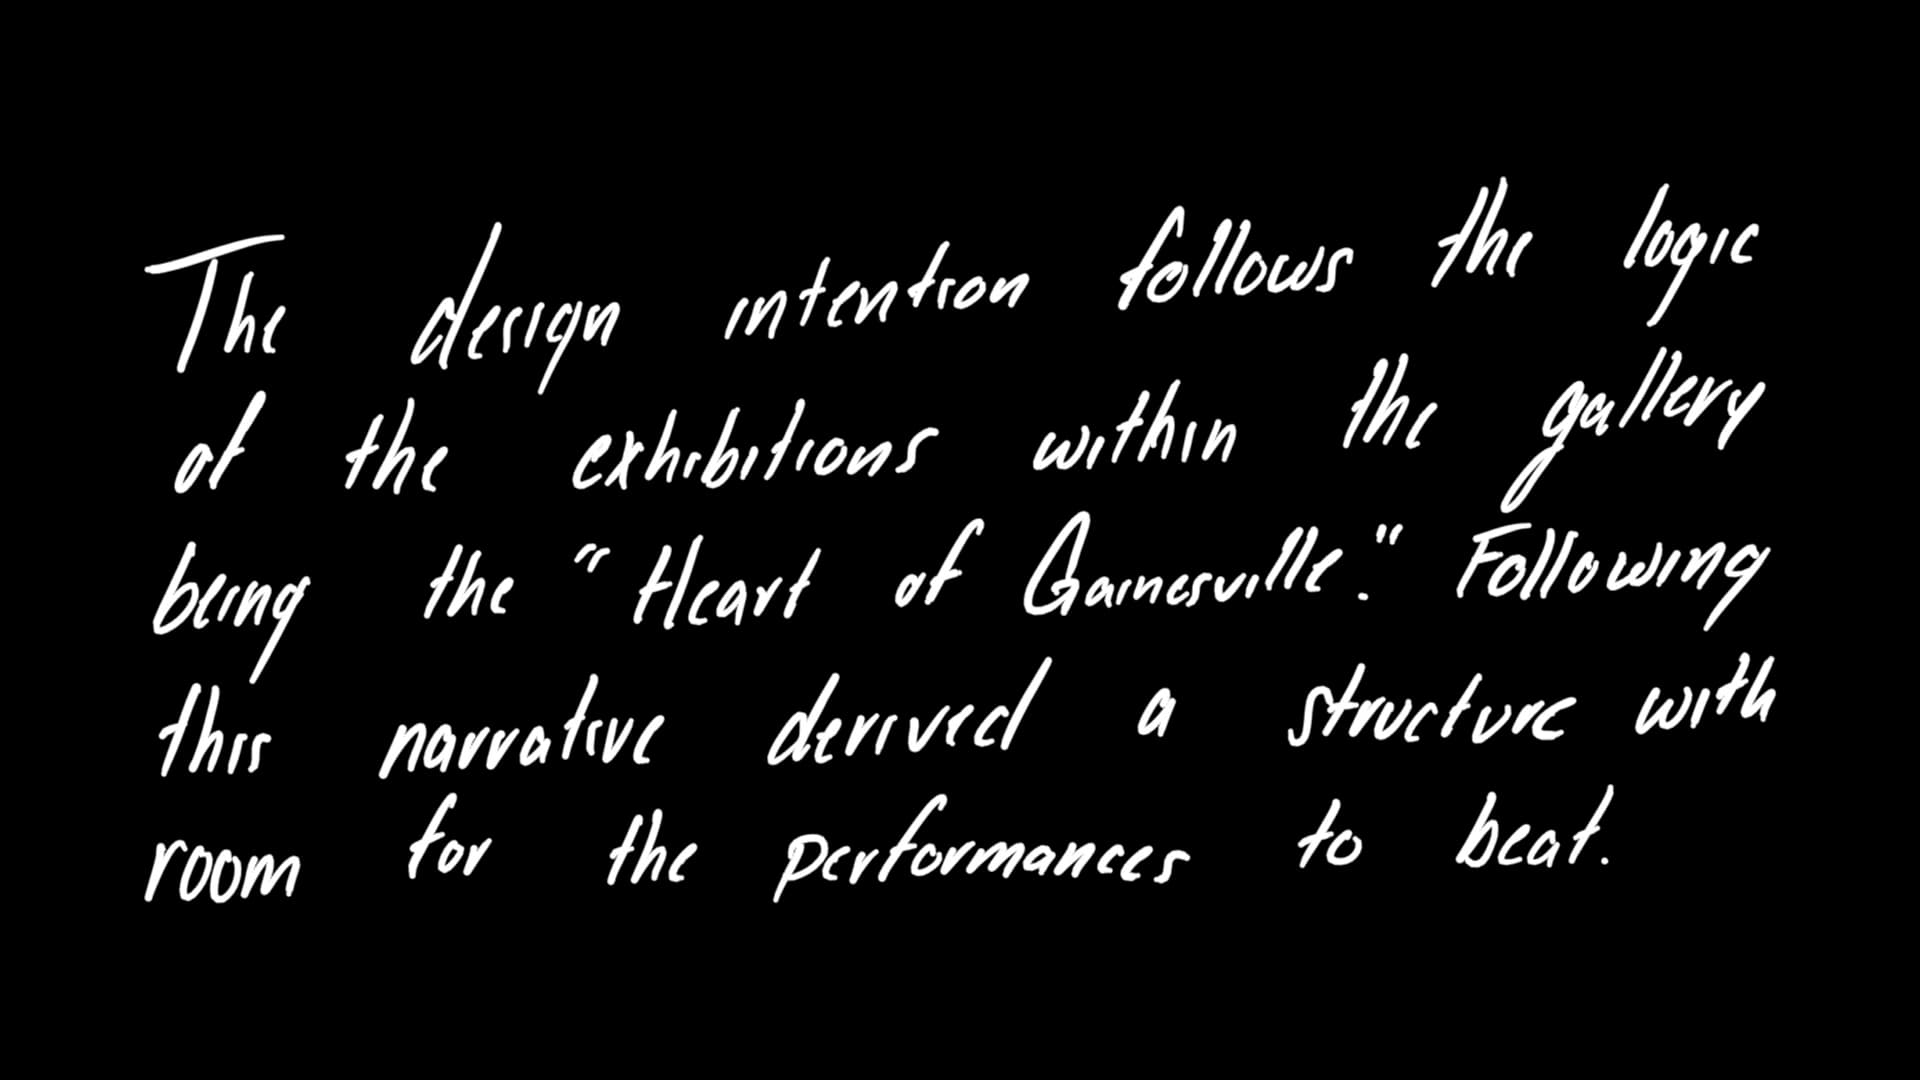 The design intention follows the logic
of the exhibitions within the gallery
being the "Heart of Gainesville." Following
this narrative derived a structure with
room for the performances to beat.